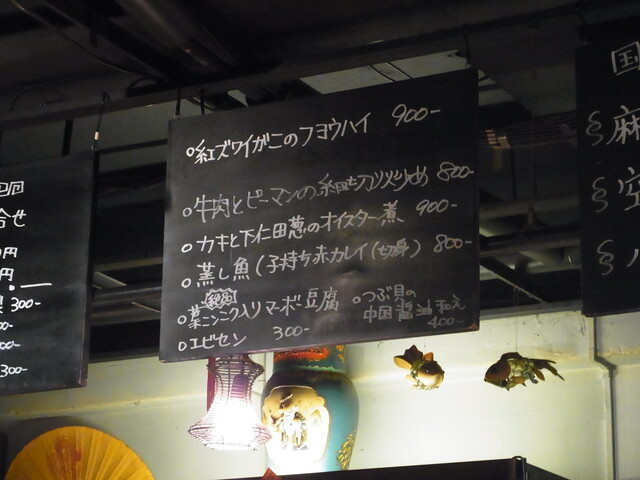 回
合せ
0円
円
300-
00-
00-
300-
○紅ズワイがこのフヨウハイ 900-
○牛肉とピーマンの細切り炒め 800-
○カキと下仁田葱のオイスター煮 900-
○蒸し魚(子持ち赤カレイ(切身) 800-
○葉ニンニク入りマーボー豆腐
○つぶ貝の
中国醤油和え
400-
○エビセン 300-
国
§麻
§空
§